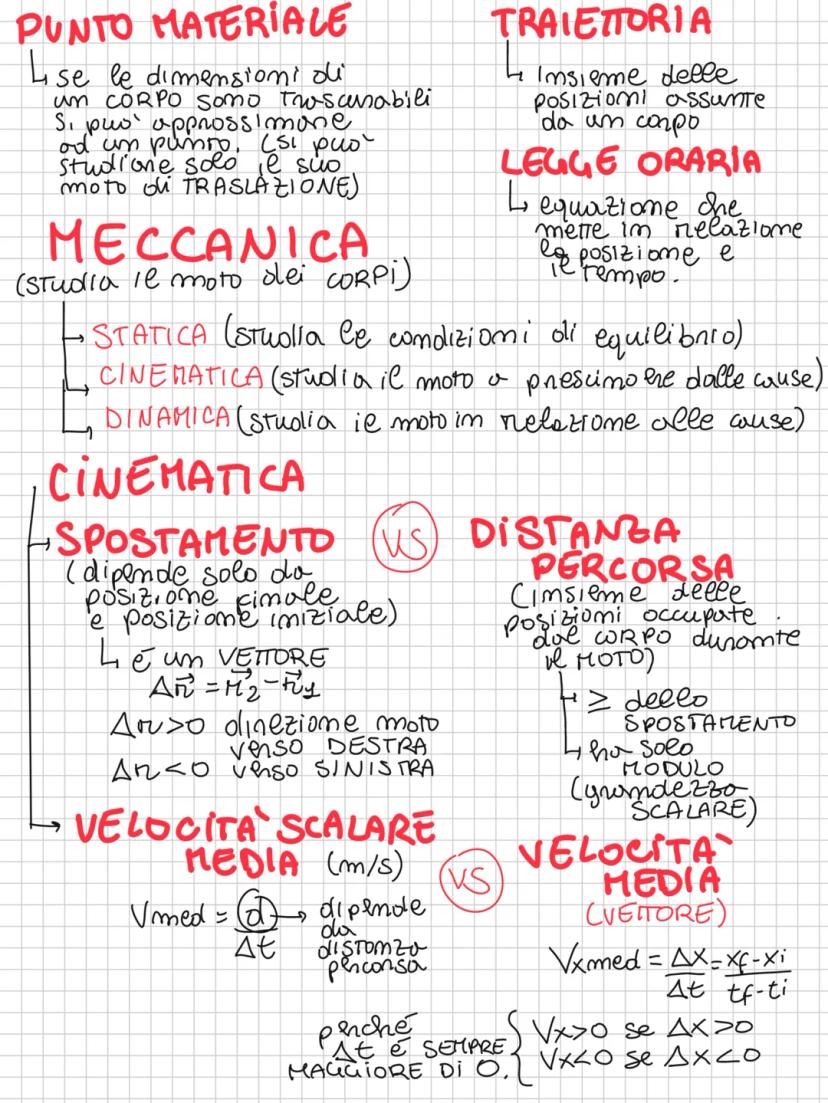 PUNTO MATERIALE
se le dimensioni di
un CORPO sono trascurabili
si può approssimare
ad un punto. (si può
studiare solo il suo
moto di TRASLAZIONE)
TRAIETTORIA
insieme delle
posizioni assunte
da un corpo
LEGGE ORARIA
equazione che
mette in relazione
la posizione e
il tempo.
MECCANICA
(studia il moto dei CORPI)
STATICA (studia le condizioni di equilibrio)
CINEMATICA (studia il moto a prescindere dalle cause)
DINAMICA (studia il moto in relazione alle cause)
CINEMATICA
SPOSTAMENTO
(dipende solo da
posizione finale
e posizione iniziale)
è un VETTORE
Δr⃗ = r⃗2 - r⃗1
Δr>0 direzione moto
verso DESTRA
Δr<0 verso SINISTRA
VS
DISTANZA
PERCORSA
(insieme delle
posizioni occupate
dal CORPO durante
il MOTO)
≥ dello
SPOSTAMENTO
ha solo
MODULO
(grandezza
SCALARE)
VELOCITA' SCALARE
MEDIA (m/s)
Vmed = d/Δt → dipende
da
distanza
percorsa
VS
VELOCITA'
MEDIA
(VETTORE)
Vxmed = Δx/Δt = xf-xi/tf-ti
perché
Δt è SEMPRE
MAGGIORE DI 0.
Vx>0 se Δx>0
Vx<0 se Δx<0